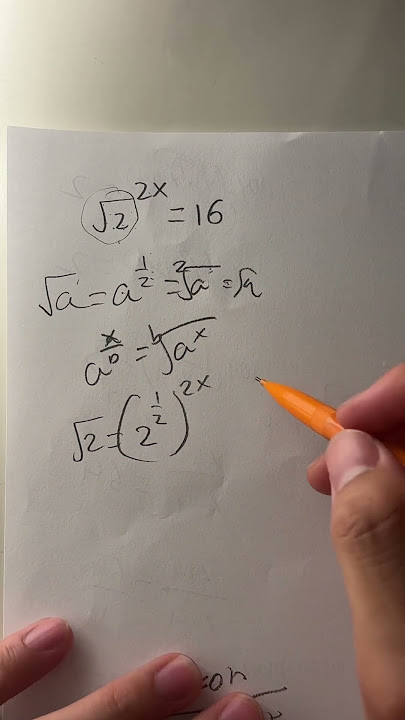 √2^2x = 16
√a = a^1/2 = ²√a = √a
a^x/b = b√a^x
√2 = (2^1/2)^2x